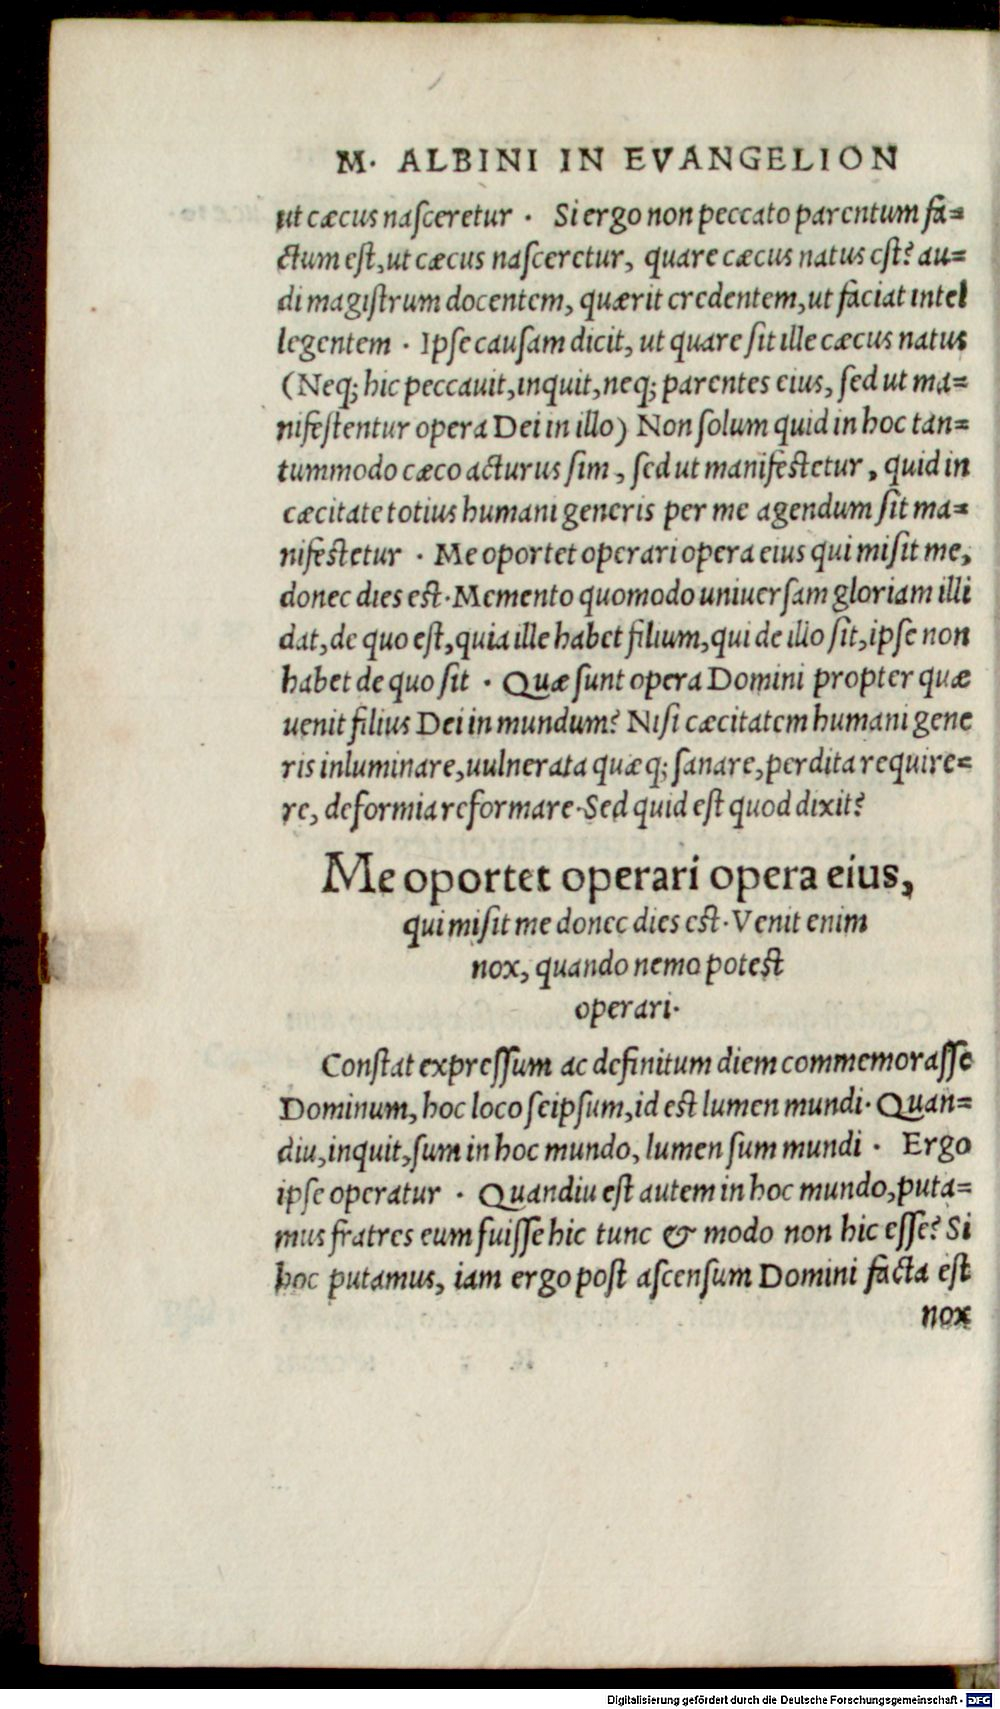 M. ALBINI IN EVANGELION
ut cæcus naſceretur . Si ergo non peccato parentum fa=
ctum eſt, ut cæcus naſceretur, quare cæcus natus eſt? au=
di magiſtrum docentem, quærit credentem, ut faciat intel
legentem . Ipſe cauſam dicit, ut quare ſit ille cæcus natus
(Neq; hic peccauit, inquit, neq; parentes eius, ſed ut ma=
nifeſtentur opera Dei in illo) Non ſolum quid in hoc tan=
tummodo cæco acturus ſim, ſed ut manifeſtetur, quid in
cæcitate totius humani generis per me agendum ſit ma=
nifeſtetur . Me oportet operari opera eius qui miſit me,
donec dies eſt. Memento quomodo uniuerſam gloriam illi
dat, de quo eſt, quia ille habet filium, qui de illo ſit, ipſe non
habet de quo ſit . Quæ ſunt opera Domini propter quæ
uenit filius Dei in mundum? Niſi cæcitatem humani gene
ris inluminare, uulnerata quæq; ſanare, perdita require=
re, deformia reformare. Sed quid eſt quod dixit?
Me oportet operari opera eius,
qui miſit me donec dies eſt. Venit enim
nox, quando nemo poteſt
operari.
Conſtat expreſſum ac definitum diem commemoraſſe
Dominum, hoc loco ſeipſum, id eſt lumen mundi. Quan=
diu, inquit, ſum in hoc mundo, lumen ſum mundi . Ergo
ipſe operatur . Quandiu eſt autem in hoc mundo, puta=
mus fratres eum fuiſſe hic tunc & modo non hic eſſe? Si
hoc putamus, iam ergo poſt aſcenſum Domini facta eſt
nox
Digitalisierung gefördert durch die Deutsche Forschungsgemeinschaft - DFG